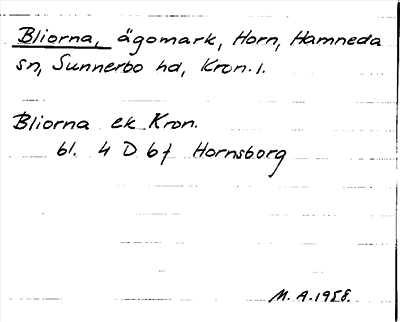 Bliorna, ägomark, Horn, Hamneda
sn, Sunnerbo hd, Kron. l.
Bliorna ek Kron.
bl. 4 D b f Hornsborg
M. A. 1958.